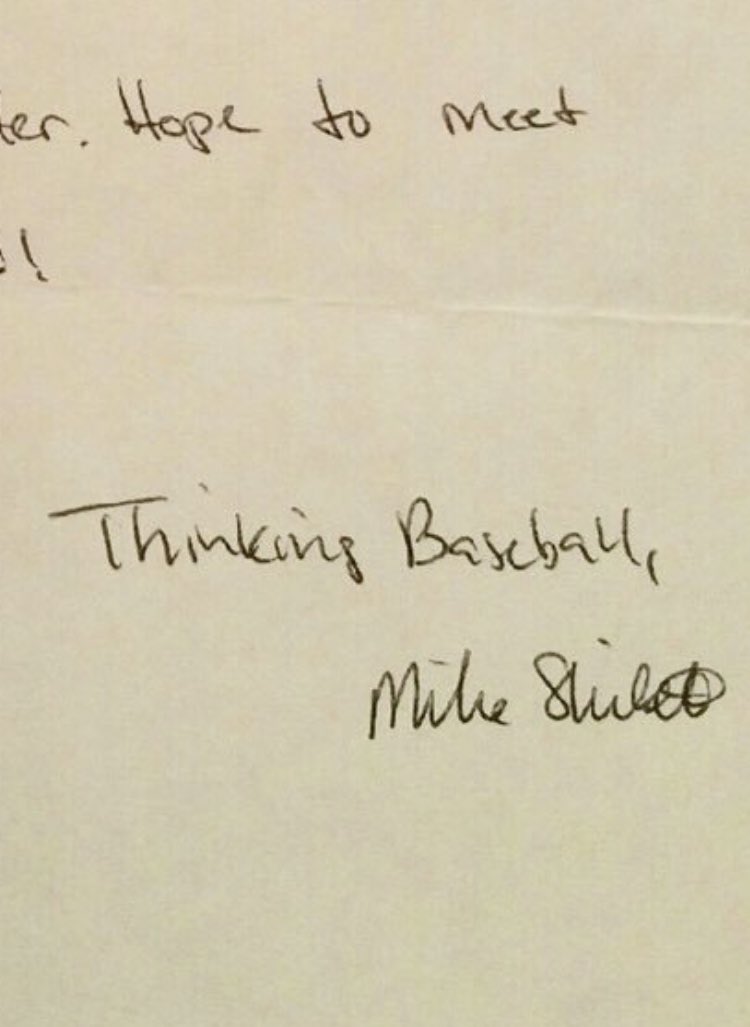 ter. Hope to meet
!
Thinking Baseball,
Mike Shildt